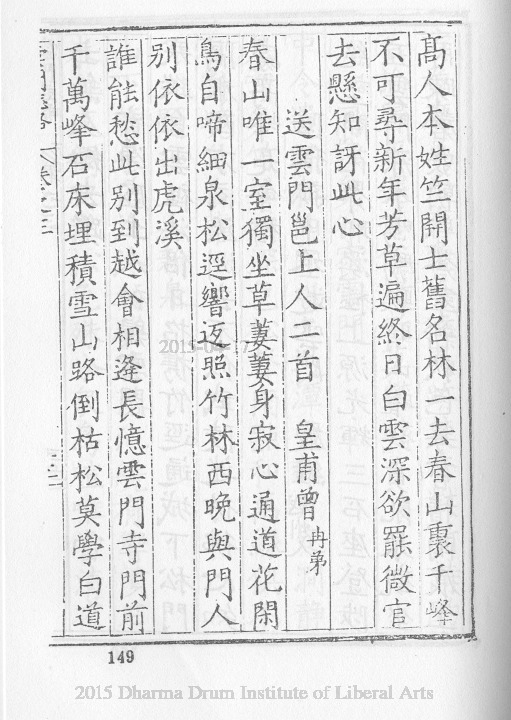 高人本姓竺開士舊名林一去春山裏千峰
不可尋新年芳草遍終日白雲深欲罷微官
去懸知訝此心
送雲門邕上人二首 皇甫曾 冉弟
春山唯一室獨坐草萋萋身寂心通道花閑
鳥自啼細泉松逕響返照竹林西晚與門人
別依依出虎溪
誰能愁此別到越會相逢長憶雲門寺門前
千萬峰石床埋積雪山路倒枯松莫學白道
雲門志略 卷之三
149
2015 Dharma Drum Institute of Liberal Arts